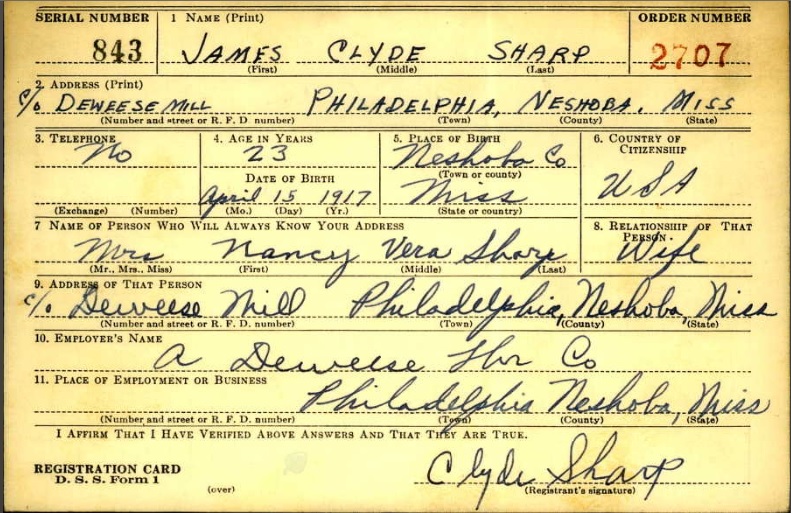 SERIAL NUMBER 1 NAME (Print) ORDER NUMBER
843 JAMES CLYDE SHARP 2707
(First) (Middle) (Last)
2. ADDRESS (Print)
c/o DEWEESE MILL PHILADELPHIA, NESHOBA. MISS
(Number and street or R. F. D number) (Town) (County) (State)
3. TELEPHONE 4. AGE IN YEARS 5. PLACE OF BIRTH 6. COUNTRY OF CITIZENSHIP
No 23 Neshoba Co
(Town or county)
DATE OF BIRTH USA
April 15 1917 Miss
(Exchange) (Number) (Mo.) (Day) (Yr.) (State or country)
7 NAME OF PERSON WHO WILL ALWAYS KNOW YOUR ADDRESS 8. RELATIONSHIP OF THAT PERSON.
Mrs Nancy Vera Sharp Wife
(Mr., Mrs., Miss) (First) (Middle) (Last)
9. ADDRESS OF THAT PERSON
c/o Deweese Mill Philadelphia, Neshoba, Miss
(Number and street or R. F. D. number) (Town) (County) (State)
10. EMPLOYER'S NAME
A Deweese Lbr Co
11. PLACE OF EMPLOYMENT OR BUSINESS
Philadelphia Neshoba, Miss
(Number and street or R. F. D. number) (Town) (County) (State)
I AFFIRM THAT I HAVE VERIFIED ABOVE ANSWERS AND THAT THEY ARE TRUE.
REGISTRATION CARD Clyde Sharp
D. S. S. Form 1 (over) (Registrant's signature)